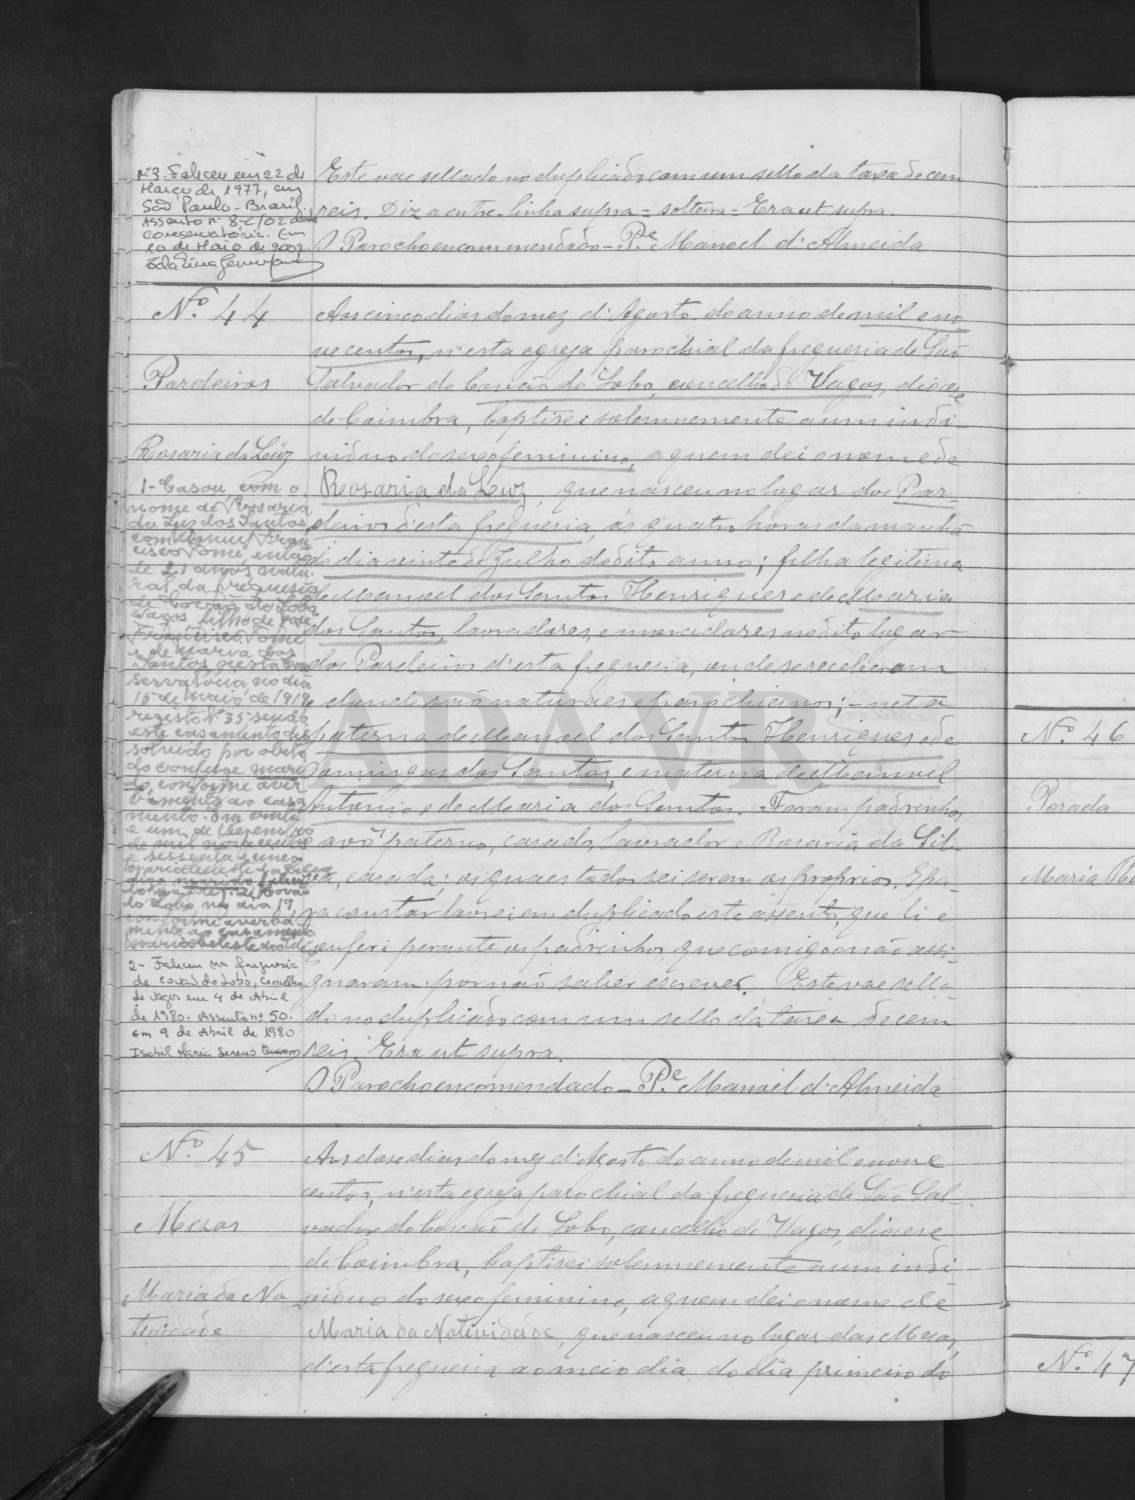 Nº3 - Faleceu em 22 de
Março de 1977, em
São Paulo - Brasil
Assento nº 8-C/02 desta
Conservatória. Em
10 de Maio de 2002
Este vae sellado no duplicado com um sello da taxa de cem
reis. Diz a entre-linha supra = solteira = Era ut supra.
O Parocho encommendado - Pe. Manoel d'Almeida
Nº. 44
Pardeiros
Rosaria da Luz
1 - Casou com o
nome de Rosaria
da Luz dos Santos
com Manuel Fran
cisco Tomé, então
de 21 anos natu-
ral da freguesia
de Covão do Lobo
Vagos, filho de José
Francisco Tomé
e de Maria dos
Santos nesta Con
servatória no dia
15 de Maio de 1919
registo Nº 35 sendo
este casamento dis
solvido por obito
do conjuge mari
do, conforme aver
bamento ao casa
mento. Em vinte
e um de Dezembro
de mil novecentos
e sessenta e cinco
do Lobo no dia 19
conforme averba
mento ao casamento
2 - Faleceu na freguesia
de Covão do Lobo, Concelho
de Vagos em 4 de Abril
de 1980. Assento nº 50.
Em 9 de Abril de 1980
Isabel Maria Sereno
Aos cinco dias do mez d'Agosto do anno de mil e no
vecentos, n'esta egreja parochial da freguesia de São
Salvador do Covão do Lobo, concelho de Vagos, diocese
de Coimbra, baptisei solemnemente a um indi-
viduo do sexo feminino, a quem dei o nome de
Rosaria da Luz, que nasceu no lugar dos Par-
deiros d'esta freguesia, ás quatro horas da manhã
do dia vinte de Julho do dito anno; filha legitima
de Manoel dos Santos Henriques e de Maria
dos Santos, lavradores, e moradores no dito lugar
dos Pardeiros d'esta freguesia, onde se receberam
e d'onde são naturaes e parochianos; - neta
paterna de Manoel dos Santos Henriques e de
Domingas dos Santos, e materna de Manuel
Antonio e de Maria dos Santos. Foram padrinhos
o avô paterno, casado, lavrador e Rosaria da Sil-
va, casada; os quaes todos sei serem os proprios. E pa-
ra constar lavrei em duplicado este assento, que li e
conferi perante os padrinhos, que comigo não assi-
gnaram por não saber escrever. Este vae sella-
do no duplicado com um sello da taxa de cem
reis. Era ut supra.
O Parocho encomendado - Pe. Manoel d'Almeida
Nº. 45
Mesas
Maria da Na
tividade
Aos dose dias do mez d'Agosto do anno de mil e nove
centos, n'esta egreja parochial da freguesia de São Sal-
vador do Covão do Lobo, concelho de Vagos, diocese
de Coimbra, baptisei solemnemente a um indi-
viduo do sexo feminino, a quem dei o nome de
Maria da Natividade, que nasceu no lugar das Mesas,
d'esta freguesia ao meio dia, do dia primeiro do
ADAVR
Nº. 46
Parada
Maria
Nº. 47